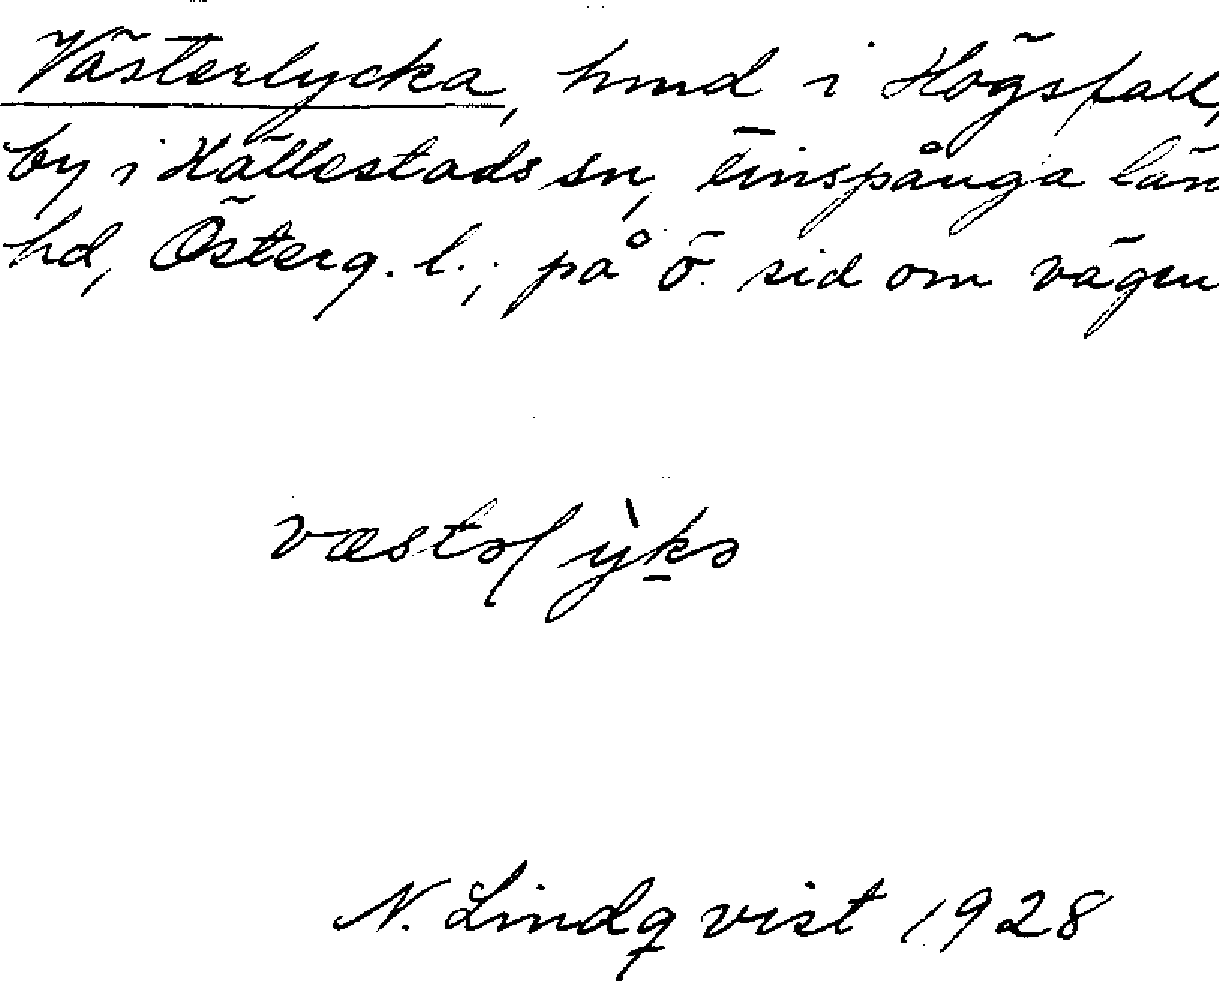 Västerlycka, hmd i Högsfall,
by i Hällestads sn, Finspånga län
hd, Österg. l.; på ö. sid om vägen
væstəɭỳkə
N. Lindqvist 1928